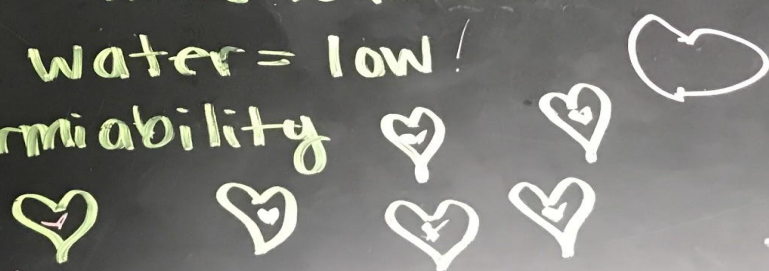 water = low!
rmiability